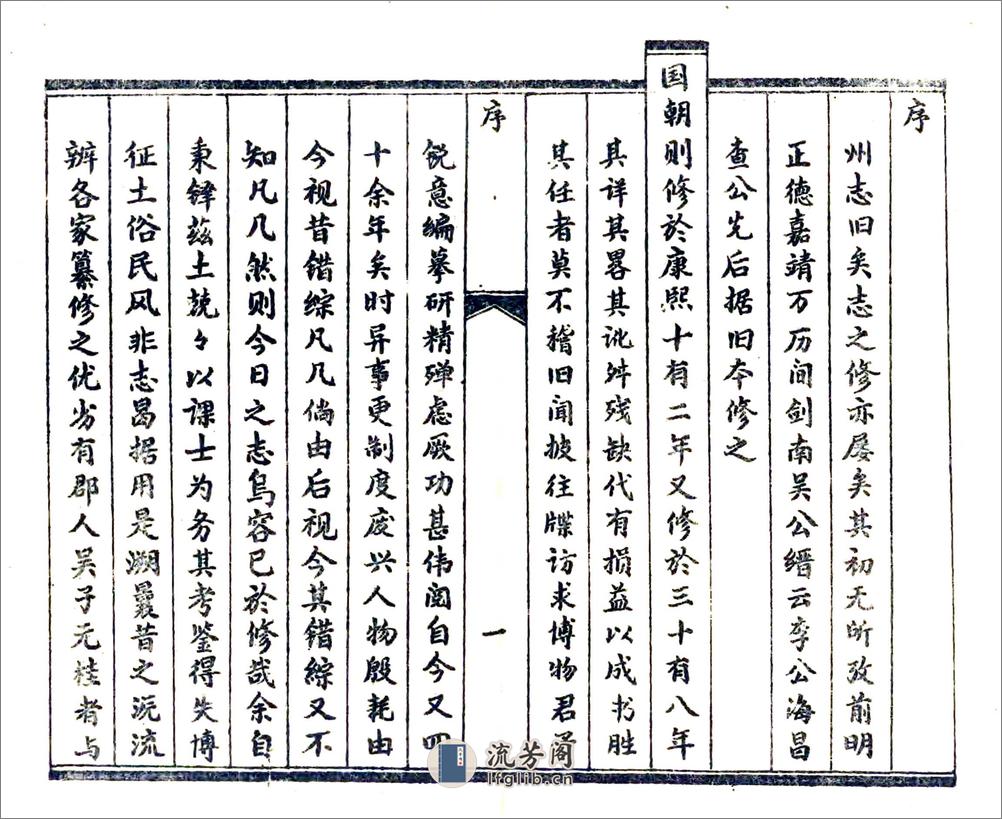 序
州志旧矣志之修亦屡矣其初无所攷前明
正德嘉靖万历间剑南吴公缙云李公海昌
查公先后据旧本修之
国朝则修於康熙十有二年又修於三十有八年
其详其畧其讹舛残缺代有损益以成书胜
其任者莫不稽旧闻披往牒访求博物君
序
一
锐意编摹研精殚虑厥功甚伟阅自今又四
十余年矣时异事更制度废兴人物殷耗由
今视昔错综凡几倘由后视今其错综又不
知凡几然则今日之志乌容已於修哉余自
秉铎兹土兢々以课士为务其考鉴得失博
征土俗民风非志曷据用是溯曩昔之沅流
辨各家纂修之优劣有郡人吴子元桂者与
流芳阁
lfglib.cn